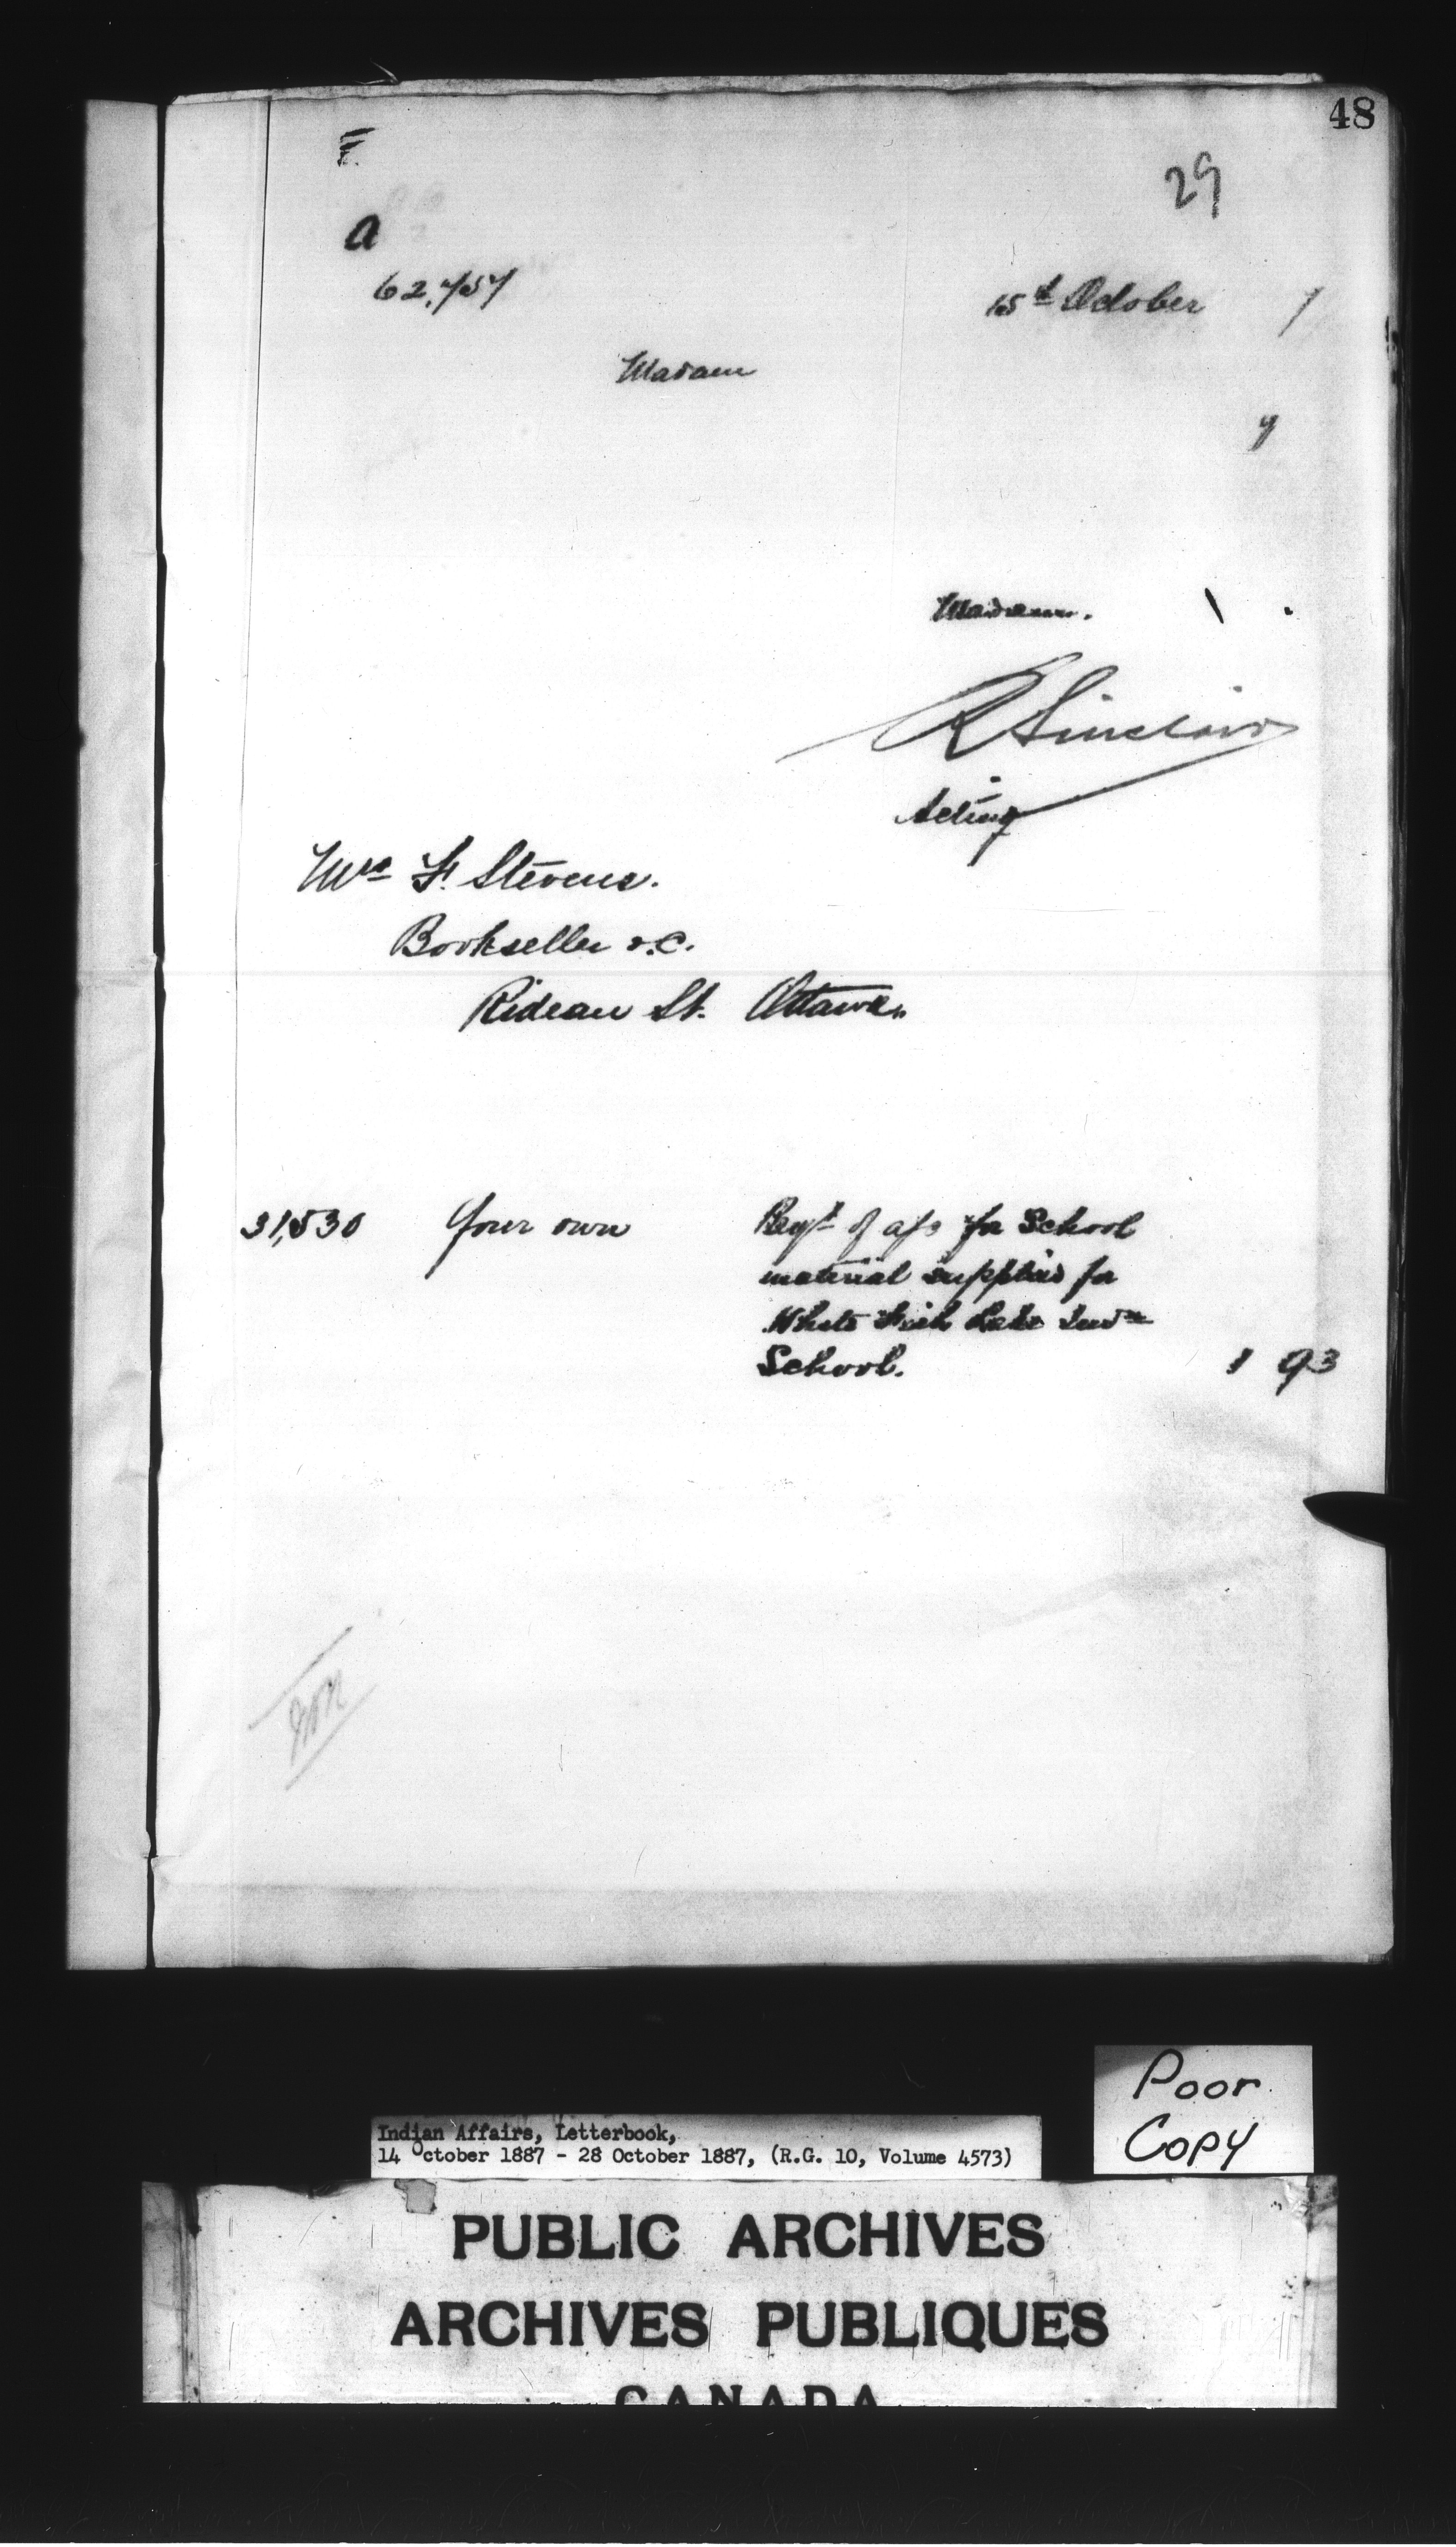 48
29
a
62,757
15th October 7
Madam
y
Madam.
R Sinclair
Acting
Mrs F. Stevens.
Bookseller &c.
Rideau St. Ottawa.
31,530 Your own Payt of a/c for School
material supplied for
White Fish Lake Indn
School. 1 93
Poor
Copy
Indian Affairs, Letterbook,
14 October 1887 - 28 October 1887, (R.G. 10, Volume 4573)
PUBLIC ARCHIVES
ARCHIVES PUBLIQUES
CANADA